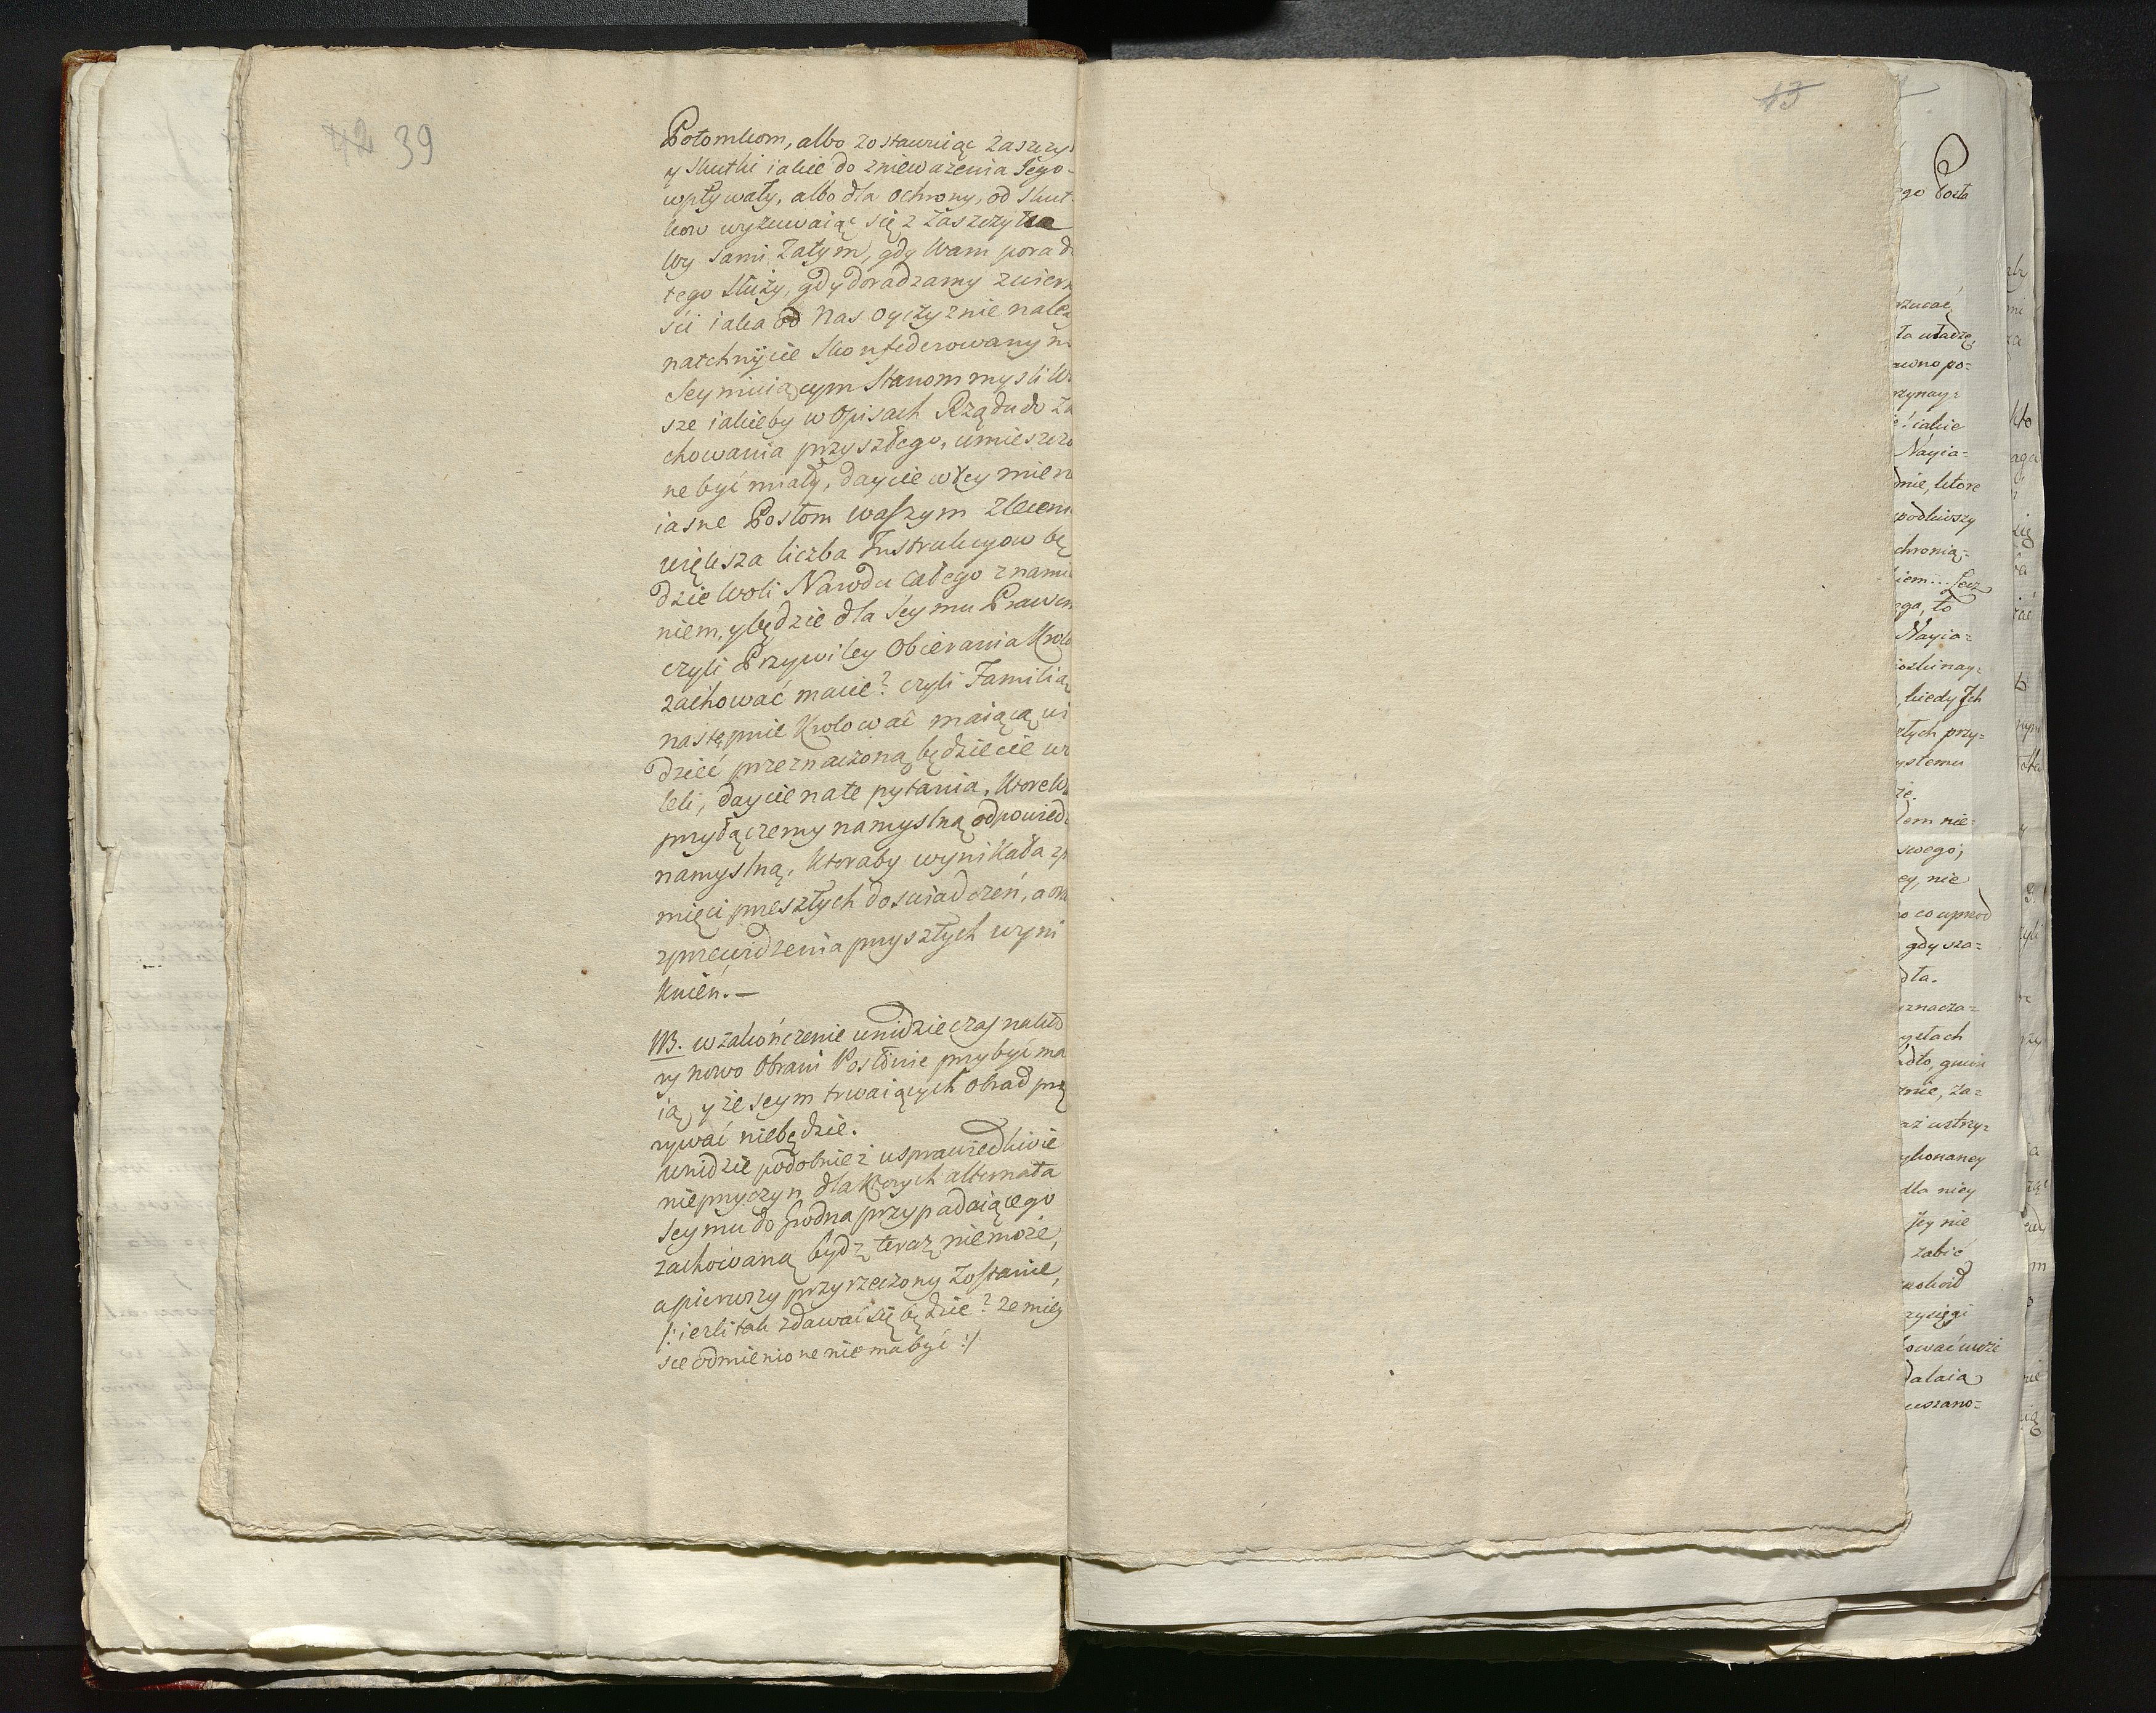 42 39
Potomkom, albo zostawuiąc zaszczy
y skutki iakie do znieważenia Jego-
wpływały, albo dla ochrony, od skut-
kow wyzuwaiąc się z zaszczytu
Wy sami zatym, gdy Wam pora do
tego służy, gdy doradzamy zwiern
ści iaka od Nas Oyczyznie należy
natchniycie skonfederowanym
Seymuiącym Stanom mysli Wa
sze iakieby w Opisach Rządu do za
chowania przyszłego, umieszczo
ne być miały, daycie w tey mierze
iasne Posłom waszym zleceni
większa liczba Instrukcyow bę
dzie Woli Narodu całego znamie
niem, y będzie dla Seymu Prawem
czyli Przywiley Obierania Krolo
zachować macie? czyli Familią
następnie Krolować maiącą wi
dzieć przeznaczoną będziecie wo
leli, daycie na te pytania, ktore Wa
przyłączemy namyslną odpowiedz
namyslną, ktoraby wynikała z pa
mięci przeszłych doswiadczeń, a ora
z przewidzenia przyszłych wyni
knień.—
NB. w zakończenie wnidzie czas na kto
ry nowo Obrani Posłowie przybyć ma
ią, y że Seym trwaiących obrad prze
rywać niebędzie.
Wnidzie podobnież usprawiedliwie
nie przyczyn dla ktorych alternata
Seymu do Grodna przypadaiącego
zachowaną bydz teraz niemoże,
a pierwszy przyrzeczony zostanie,
/: ieżli tak zdawać się będzie? że miey
sce odmienione nie ma być :/
13
ego Posła
rzucać
ta władzę,
awno po=
rzynay=
iakie
Nayia=
dnie, ktore
podliwszy
chronią,=
iem... Lecz
ego, to
Nayia=
, kiedy Ich
ełych przy=
ystemu
że.
łem nie=
swego;
ey, nie
o co uprzod
gdy sza=
dła.
znacza=
ystach
znie, za=
aż ustrzy=
ykonaney
dla niey
Jey nie
zabić
rzysięgi
ować może
dalaia
uszano=